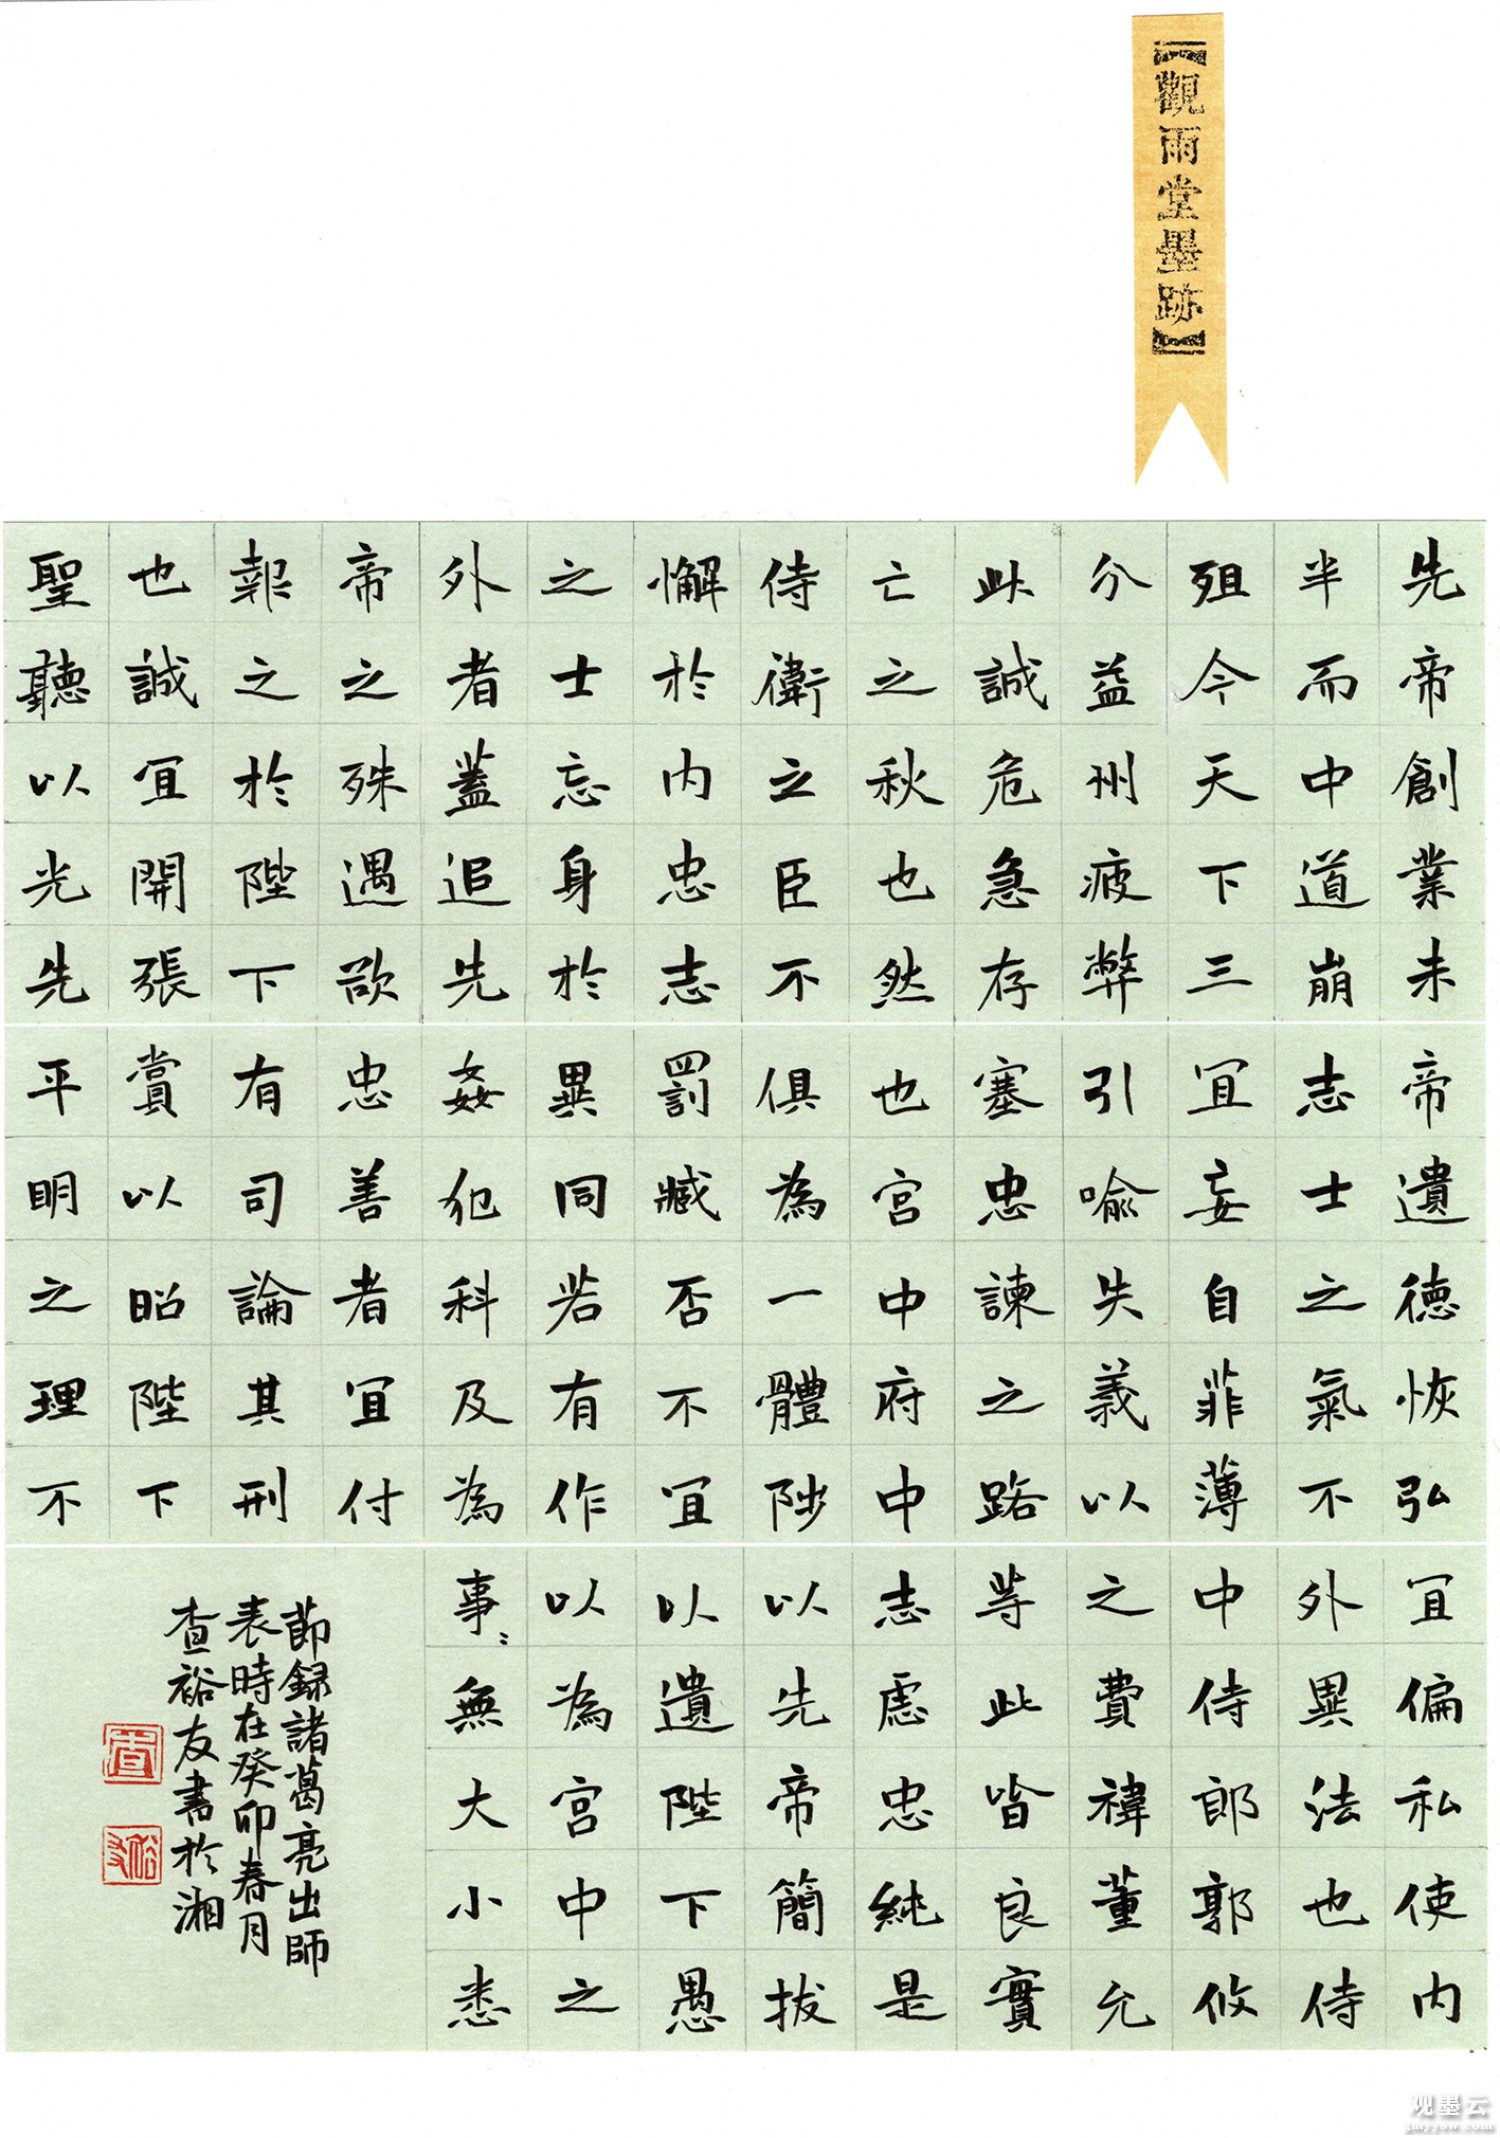 【觀雨堂墨跡】
先帝創業未
半而中道崩
殂今天下三
分益州疲弊
此誠危急存
亡之秋也然
侍衛之臣不
懈於內忠志
之士忘身於
外者蓋追先
帝之殊遇欲
報之於陛下
也誠宜開張
聖聽以光先
帝遺德恢弘
志士之氣不
宜妄自菲薄
引喻失義以
塞忠諫之路
也宮中府中
俱為一體陟
罰臧否不宜
異同若有作
姦犯科及為
忠善者宜付
有司論其刑
賞以昭陛下
平明之理不
宜偏私使內
外異法也侍
中侍郎郭攸
之費禕董允
等此皆良實
志慮忠純是
以先帝簡拔
以遺陛下愚
以為宮中之
事〻無大小悉
節録諸葛亮出師
表時在癸卯春月
查裕友書於湘
查
裕友
观墨云